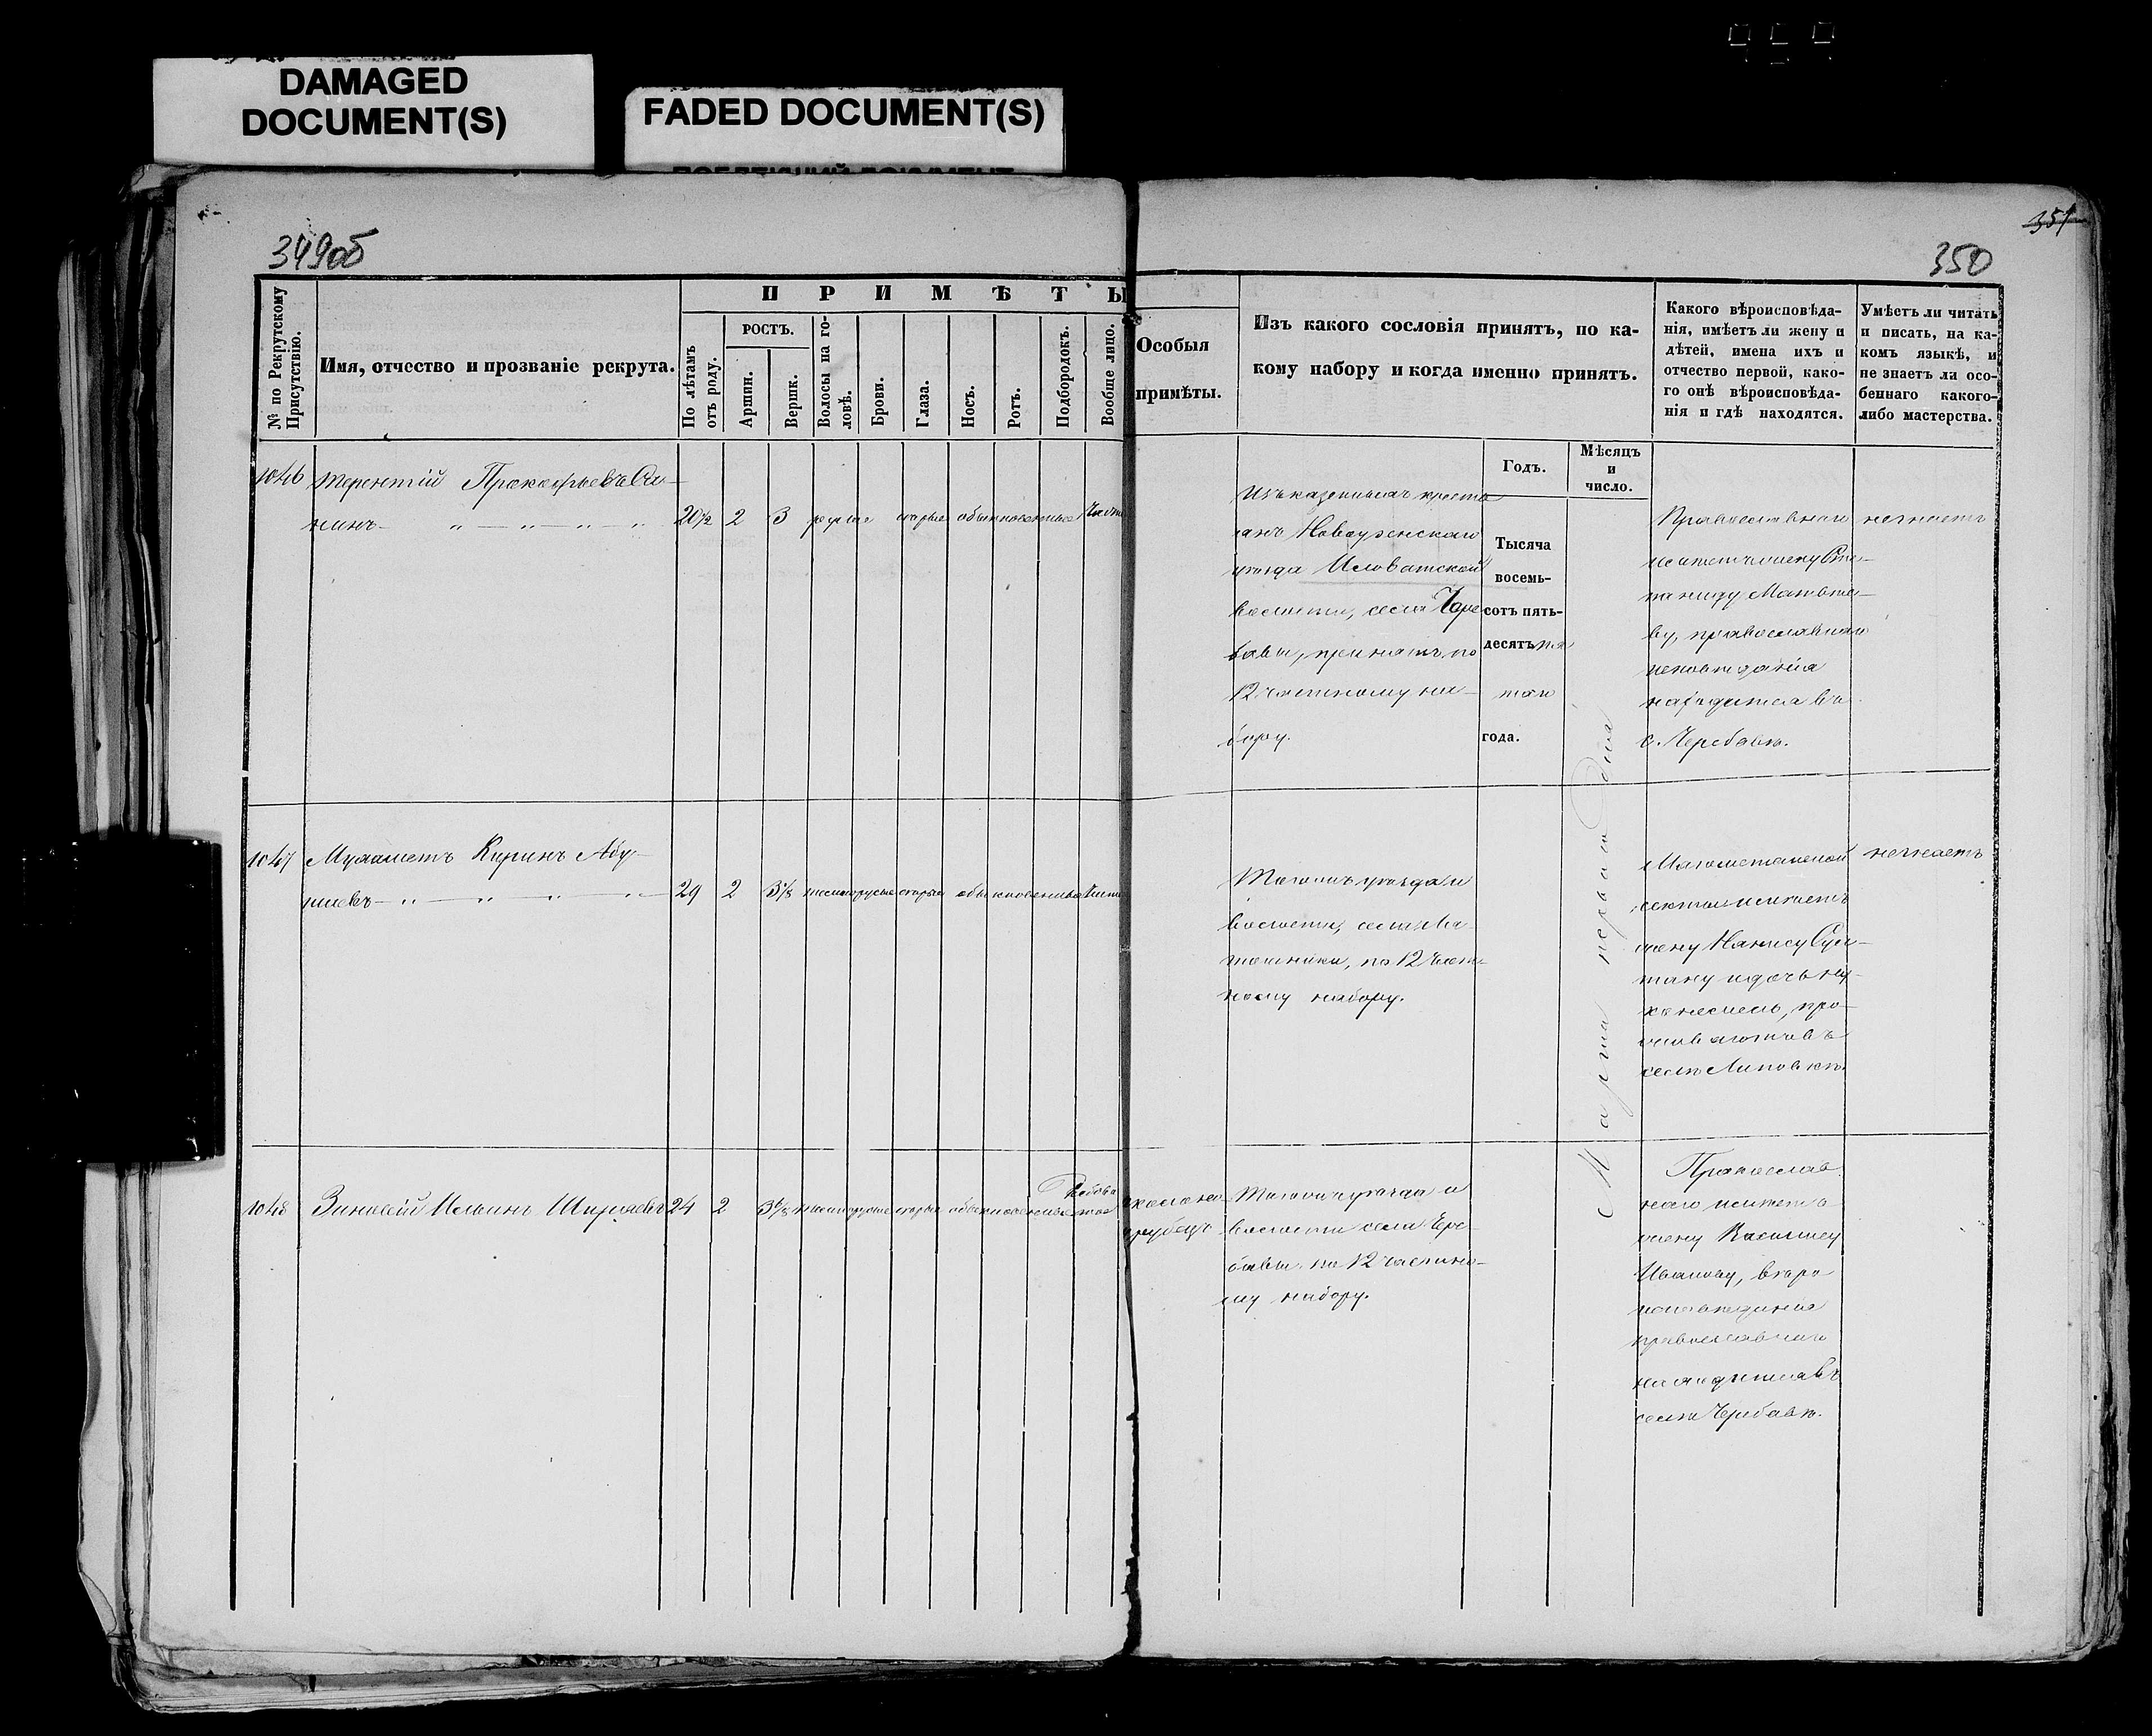 DAMAGED
DOCUMENT(S)
FADED DOCUMENT(S)
349об
350
351
П Р И М Ѣ Т Ы
№ по Рекрутскому
Присутствію.
Имя, отчество и прозваніе рекрута.
По лѣтамъ
отъ роду.
РОСТЪ.
Аршин.
Вершк.
Волосы на го-
ловѣ.
Брови.
Глаза.
Носъ.
Ротъ.
Подбородокъ.
Вообще лицо.
Особыя
примѣты.
Изъ какого сословія принятъ, по ка-
кому набору и когда именно принятъ.
Годъ.
Мѣсяцъ
и
число.
Какого вѣроисповѣда-
нія, имѣетъ ли жену и
дѣтей, имена ихъ и
отчество первой, како-
го онѣ вѣроисповѣда-
нія и гдѣ находятся.
Умѣетъ ли читать
и писать, на ка-
комъ языкѣ, и
не знаетъ ли осо-
беннаго какого-
либо мастерства.
1046 Терентій Прокофьевъ
20½ 2 3 русые сѣрые обыкновенные
Изъ казенныхъ кресть
янъ Новоузенскаго
уѣзда Иловатской
волости, села Чере
бавы, принятъ по
12 частному на-
бору.
Тысяча
восемь-
сотъ пять-
десятъ пя
таго
года.
Марта перваго дня
Православнаго
имѣетъ жену Сте-
паниду Матвѣе-
ву, православнаго
исповѣданія
находится въ
с. Черебавѣ.
незнаетъ
1047 Мухаметъ
29 2 3⅛ темнорусые сѣрые обыкновенные
Тогожъ уѣзда и
волости, села
по 12 част-
ному набору.
Магометанской
секты имѣетъ
жену
про-
живаютъ въ
селѣ Липовкѣ.
незнаетъ
1048 Зиновій Ильинъ Ширяевъ 24 2 3⅛ темнорусые сѣрые обыкновенные
рубецъ
Тогожъ уѣзда и
волости села Чере
бавы по 12 частно-
му набору.
Православ
наго имѣетъ
жену Василису
Иванову, вѣро
исповѣданія
православнаго
находится въ
селѣ Черебавѣ.